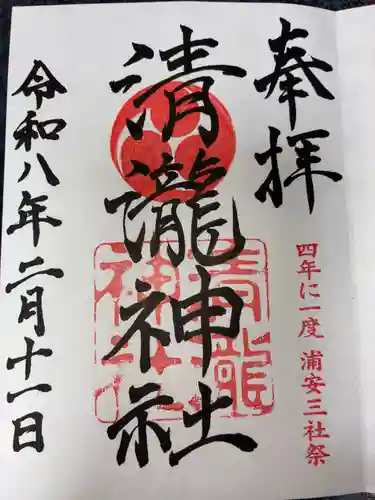 奉拝
四年に一度 浦安三社祭
清瀧神社
清瀧神社
令和八年二月十一日